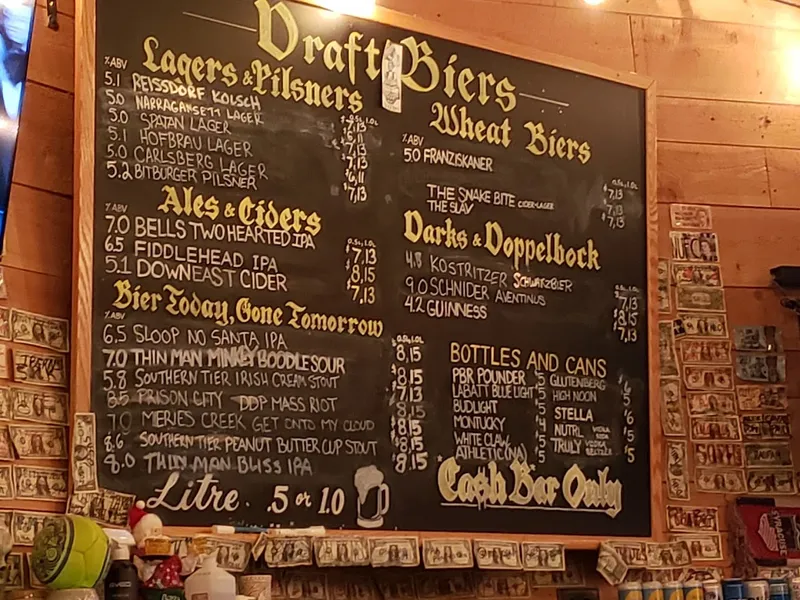 Draft Biers
Lagers & Pilsners
% ABV .5L, 1.0L
5.1 REISSDORF KOLSCH $7,13
5.0 NARRAGANSETT LAGER $6,11
5.0 SPATAN LAGER $7,13
5.1 HOFBRAU LAGER $7,13
5.0 CARLSBERG LAGER $6,11
5.2 BITBURGER PILSNER $7,13
Ales & Ciders
% ABV .5L, 1.0L
7.0 BELLS TWO HEARTED IPA $7,13
6.5 FIDDLEHEAD IPA $8,15
5.1 DOWNEAST CIDER $7,13
Bier Today, Gone Tomorrow
% ABV .5L, 1.0L
6.5 SLOOP NO SANTA IPA $8,15
7.0 THIN MAN MINKEY BOODLE SOUR
5.8 SOUTHERN TIER IRISH CREAM STOUT $8,15
8.5 PRISON CITY DDP MASS RIOT $7,13
7.0 MERIES CREEK GET ONTO MY CLOUD $8,15
8.6 SOUTHERN TIER PEANUT BUTTER CUP STOUT $8,15
8.0 THIN MAN BLISS IPA $8,15
Litre .5 or 1.0
Wheat Biers
% ABV .5L, 1.0L
5.0 FRANZISKANER $7,13
THE SNAKE BITE CIDER-LAGER $7,13
THE SLAV $7,13
Darks & Doppelbock
.5L, 1.0L
4.8 KOSTRITZER SCHWARZBIER $7,13
9.0 SCHNIDER AVENTINUS $8,15
4.2 GUINNESS $7,13
BOTTLES AND CANS
PBR POUNDER $5
LABATT BLUE LIGHT $5
BUDLIGHT $5
MONTUCKY $4
WHITE CLAW $5
ATHLETIC (NA) $5
GLUTENBERG $6
HIGH NOON $5
STELLA $6
NUTRL VODKA SODA $5
TRULY VODKA SELTZER $5
Cash Bar Only
SYRACUSE